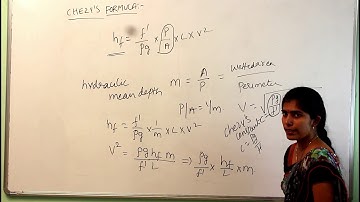 CHEZY'S FORMULA:-
hf = f'/ρg × P/A × L × V²
hydraulic mean depth m = A/P = Wetted area / Perimeter
P/A = 1/m
hf = f'/ρg × 1/m × L × V²
V = √ρg/f'
chezy's constant
c = √ρg/f'
V² = ρg hf m / f' L ⇒ ρg/f' × hf/L × m